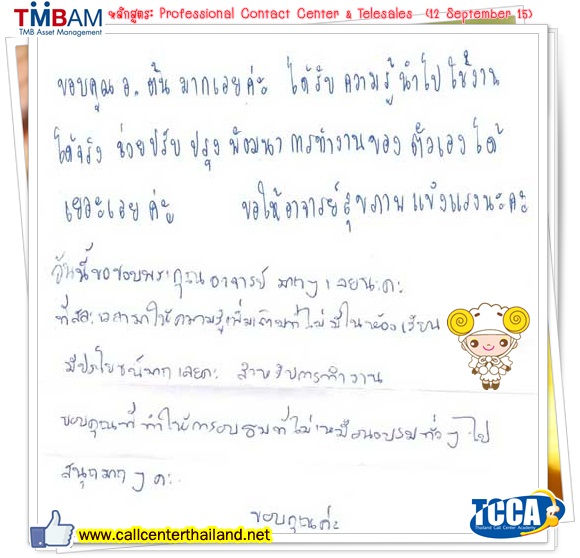 TMBAM
TMB Asset Management
หลักสูตร: Professional Contact Center & Telesales (12 September 15)
ขอบคุณ อ. ต้น มากเลยค่ะ ได้รับ ความรู้ นำไป ใช้งาน
ได้จริง ช่วยปรับ ปรุง พัฒนา การทำงานของ ตัวเอง ได้
เยอะเลย ค่ะ ขอให้อาจารย์สุขภาพ แข็งแรงนะคะ
วันนี้ขอขอบพระคุณ อาจารย์ มากๆ เลยนะคะ
ที่สละเวลามาให้ความรู้เพิ่มเติมที่ไม่มีในห้องเรียน
มีประโยชน์มากเลยคะ สำหรับการทำงาน
ขอบคุณที่ ทำให้การอบรมที่ไม่เหมือนอบรมทั่วๆไป
สนุกมากๆ คะ
ขอบคุณค่ะ
TCCA
Thailand Call Center Academy
www.callcenterthailand.net